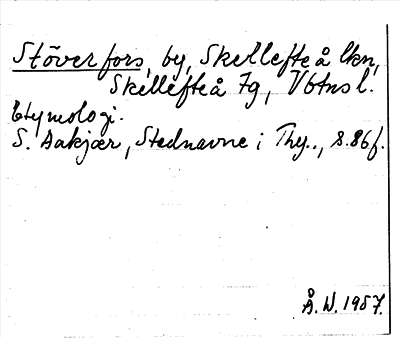 Stöverfors, by, Skellefteå lkn,
Skellefteå tg, Vbtns l.
Etymologi.
S. Aakjær, Stednavne i Thy.., s. 86 f.
Å. W. 1957.